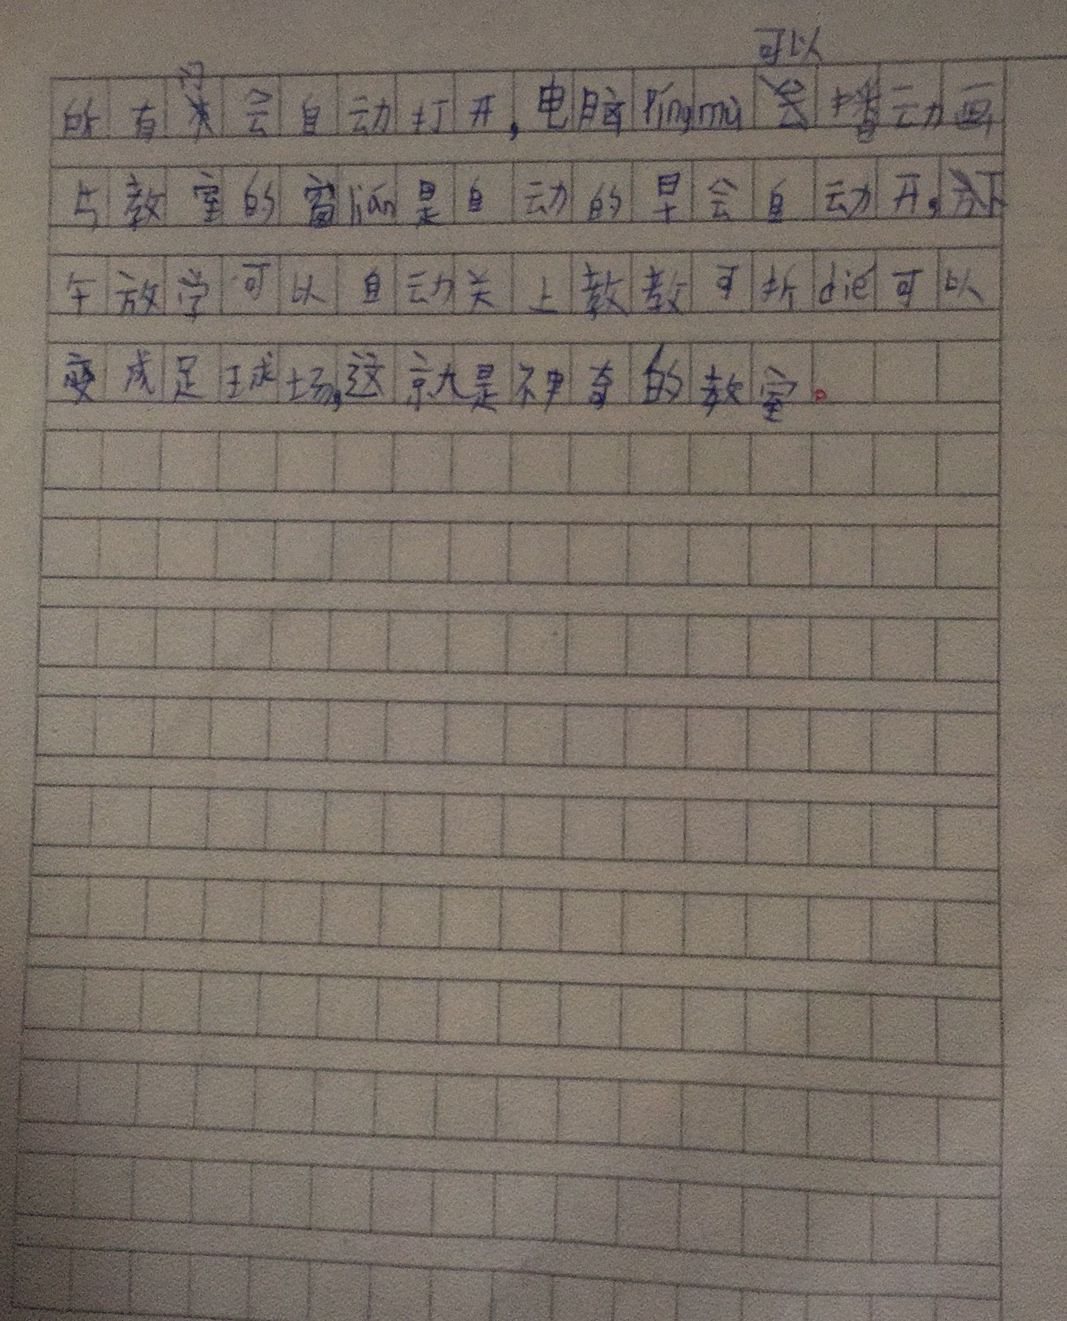 可以
的有门会自动打开,电脑Pingmù播动画
与教室的窗lián是自动的早会自动开,下
午放学可以自动关上教教可折dié可以
变成足球场,这就是神奇的教室。